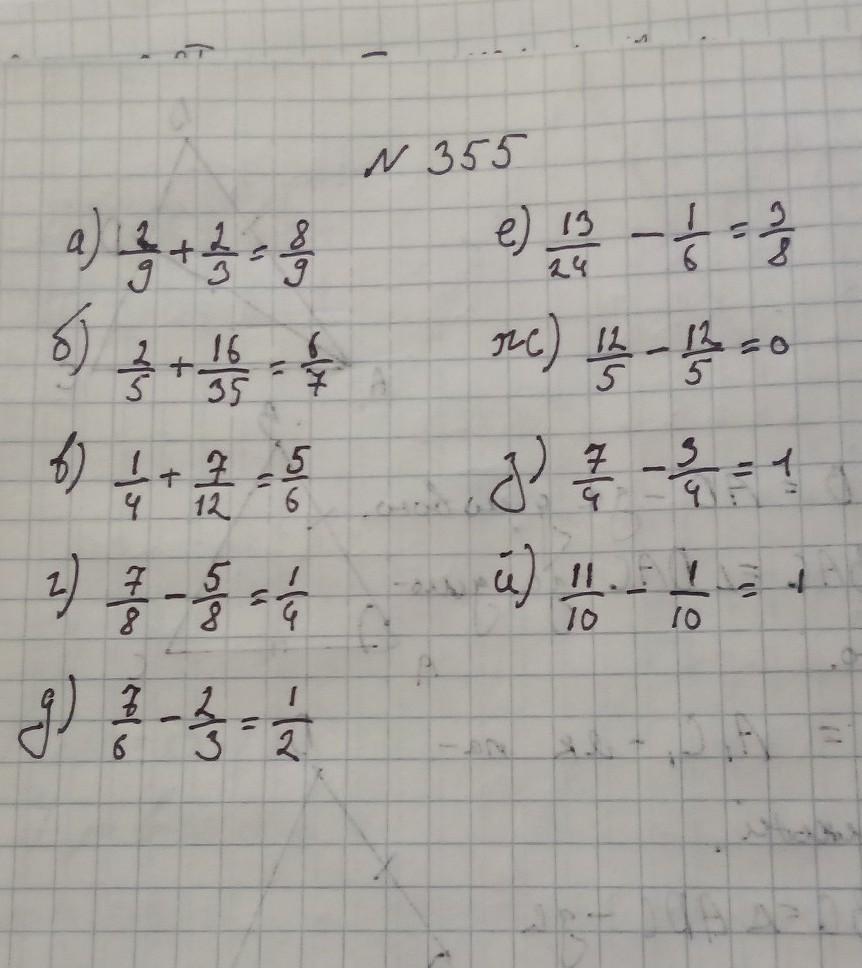 N 355
а) 2/9 + 2/3 = 8/9
б) 2/5 + 16/35 = 6/7
в) 1/4 + 7/12 = 5/6
г) 7/8 - 5/8 = 1/4
д) 7/6 - 2/3 = 1/2
е) 13/24 - 1/6 = 3/8
ж) 12/5 - 12/5 = 0
з) 7/4 - 3/4 = 1
й) 11/10 - 1/10 = 1